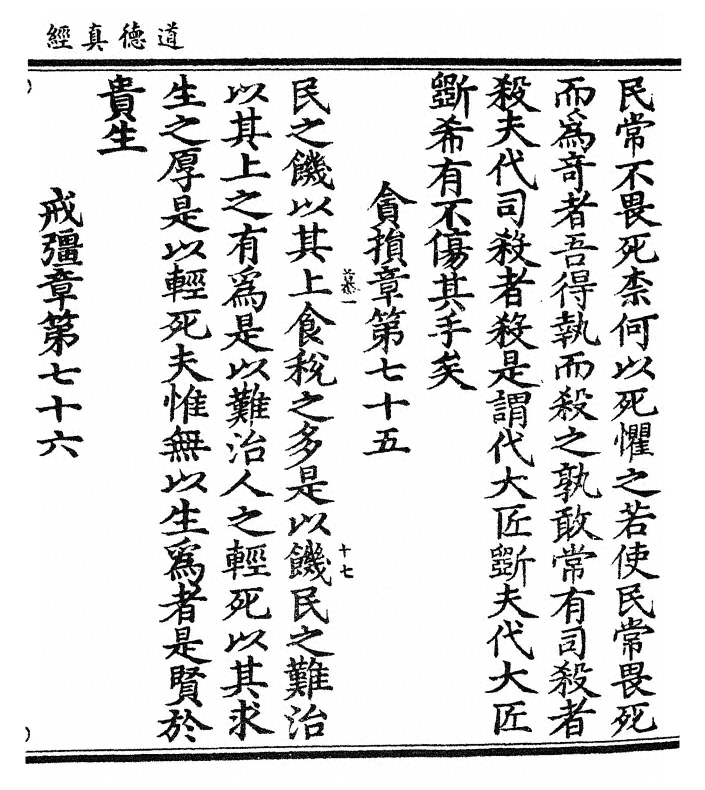 道德真經
民常不畏死柰何以死懼之若使民常畏死
而爲竒者吾得執而殺之孰敢常有司殺者
殺夫代司殺者殺是謂代大匠斲夫代大匠
斲希有不傷其手矣
貪損章第七十五
慕一
民之饑以其上食稅之多是以饑民之難治
十七
以其上之有爲是以難治人之輕死以其求
生之厚是以輕死夫惟無以生爲者是賢於
貴生
戒彊章第七十六